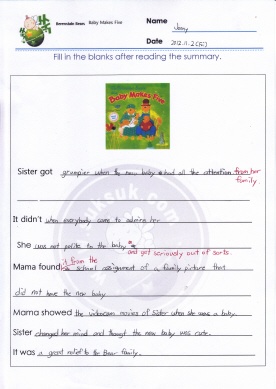 Berenstain Bears Baby Makes Five
Name
Jenny
Date 2012.11.2(Fri)
Fill in the blanks after reading the summary.
Baby Makes Five
Sister got grumpier when the new baby had all the attention from her
family.
It didn't when everybody came to admire her
She was not polite to the baby
and got seriously out of sorts.
Mama found it from the school assignment of a family picture that
did not have the new baby
Mama showed the videocam movies of Sister when she was a baby.
Sister changed her mind and though the new baby was cute.
It was a great relief to the Bear family.